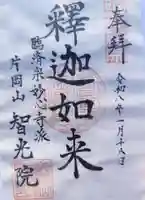 奉拝
令和八年一月十八日
釋迦如来
臨済宗妙心寺派
片岡山 智光院